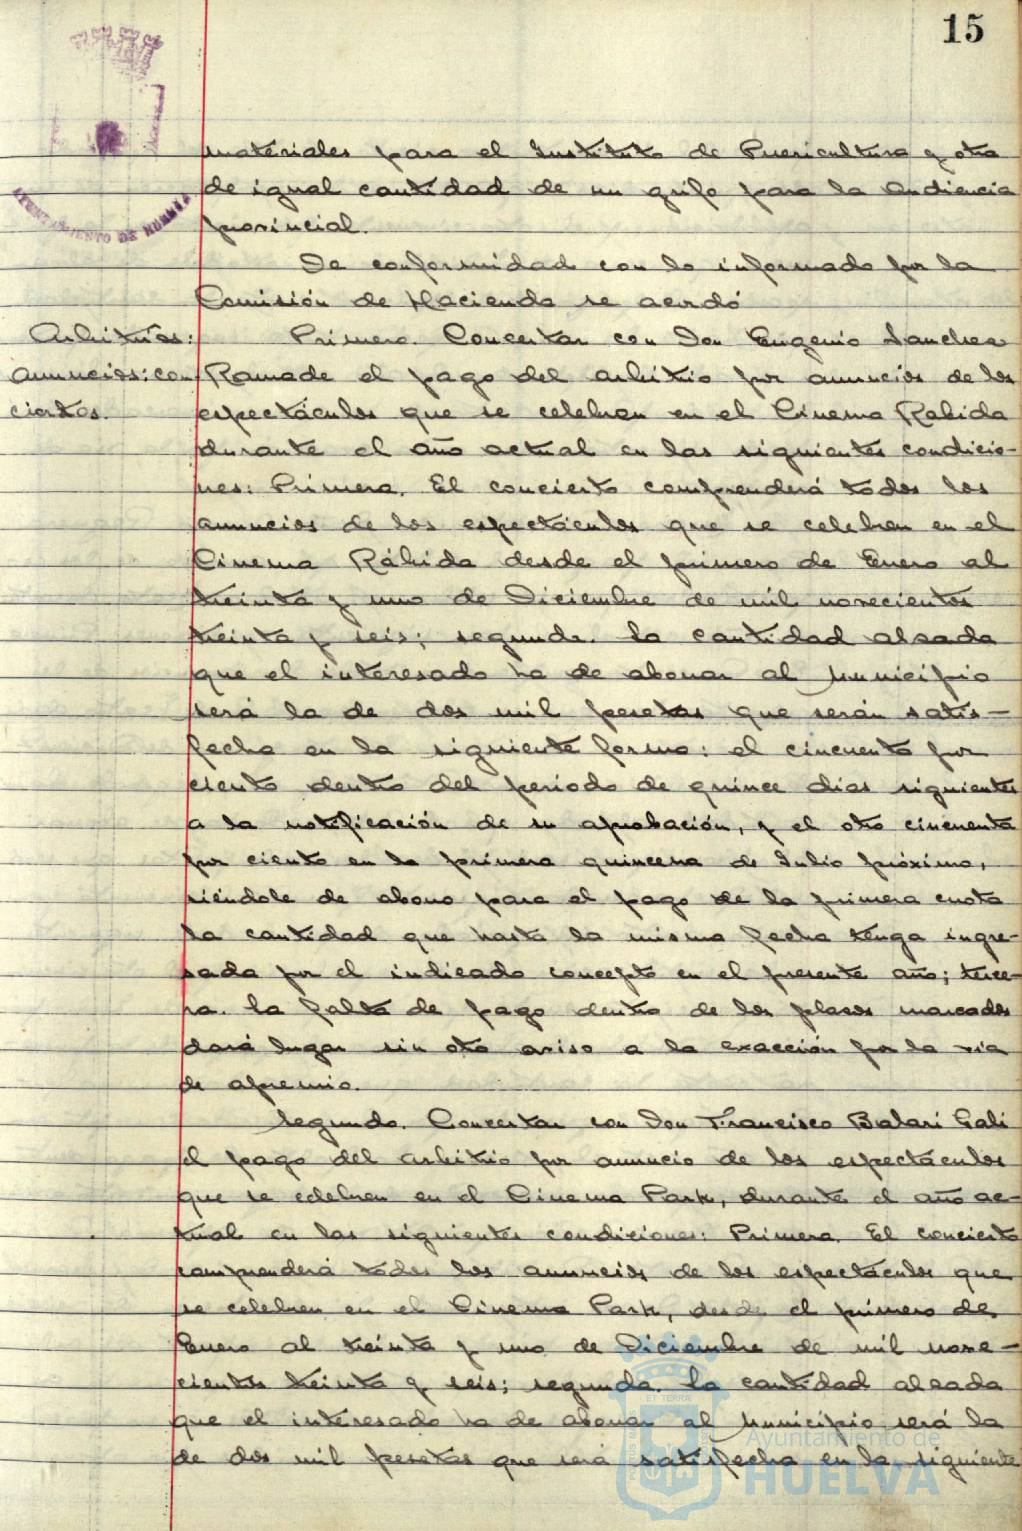 15
AYUNTAMIENTO DE HUELVA
materiales para el Instituto de Puericultura y otra
de igual cantidad de un grifo para la Audiencia
provincial.
De conformidad con lo informado por la
Comisión de Hacienda se acordó
Arbitrios:
anuncios: con
ciertos.
Primero. Concertar con Don Eugenio Sanchez
Ramade el pago del arbitrio por anuncios de los
espectáculos que se celebren en el Cinema Rabida
durante el año actual en las siguientes condicio-
nes: Primera. El concierto comprenderá todos los
anuncios de los espectáculos que se celebren en el
Cinema Rábida desde el primero de Enero al
treinta y uno de Diciembre de mil novecientos
treinta y seis; segunda. La cantidad alzada
que el interesado ha de abonar al Municipio
será la de dos mil pesetas que serán satis-
fecha en la siguiente forma: el cincuenta por
ciento dentro del periodo de quince dias siguientes
a la notificación de su aprobación, y el otro cincuenta
por ciento en la primera quincena de Julio próximo,
siéndole de abono para el pago de la primera cuota
la cantidad que hasta la misma fecha tenga ingre-
sada por el indicado concepto en el presente año; terce-
ra. La falta de pago dentro de los plazos marcados
dará lugar sin otro aviso a la exacción por la via
de apremio.
Segundo. Concertar con Don Francisco Balari Galí
el pago del arbitrio por anuncio de los espectáculos
que se celebren en el Cinema Park, durante el año ac-
tual en las siguientes condiciones: Primera. El concierto
comprenderá todos los anuncios de los espectáculos que
se celebren en el Cinema Park, desde el primero de
Enero al treinta y uno de Diciembre de mil nove-
cientos treinta y seis; segunda. La cantidad alzada
que el interesado ha de abonar al Municipio será la
de dos mil pesetas que será satisfecha en la siguiente
Ayuntamiento de
HUELVA